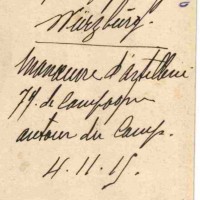 Würzburg.
Manœuvre d'artillerie
79. de Campagne
autour du Camp.
4.11.15.